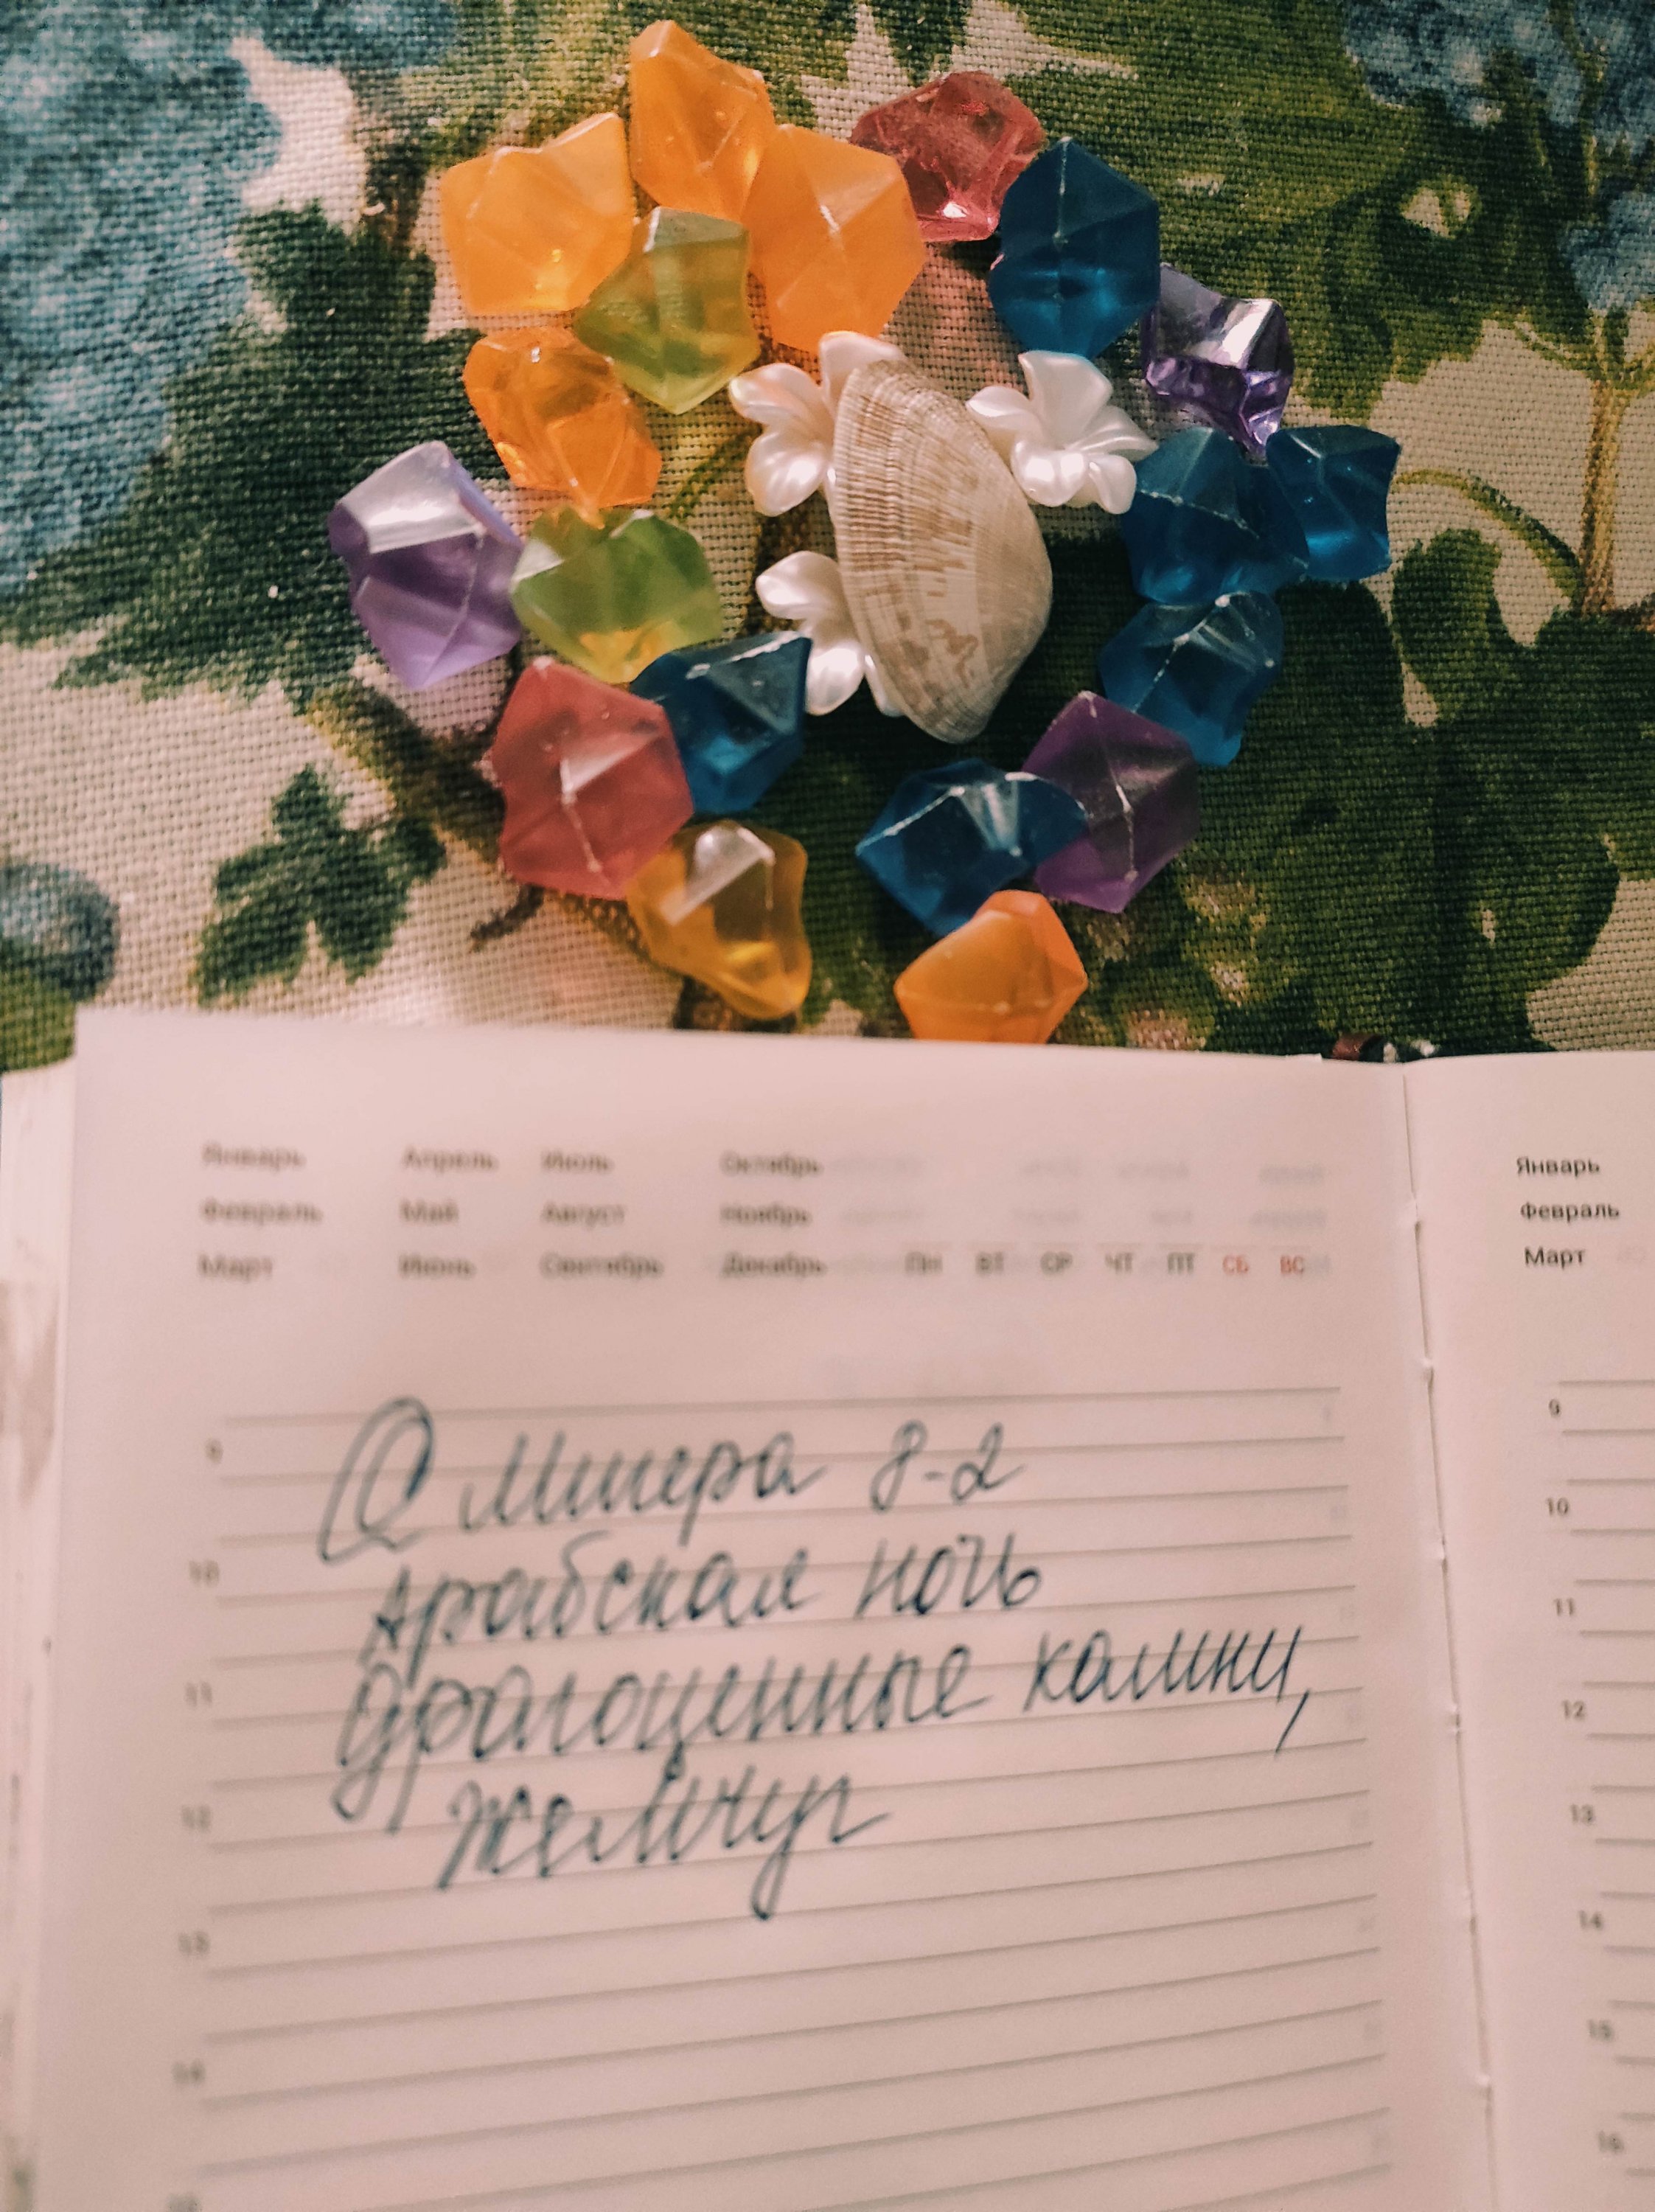 Январь Апрель Июль Октябрь
Февраль Май Август Ноябрь
Март Июнь Сентябрь Декабрь ПН ВТ СР ЧТ ПТ СБ ВС
8-2
9
Арабская ночь
10
драгоценные камни,
11
жемчуг
12
13
14
Январь
Февраль
Март
9
10
11
12
13
14
15
16